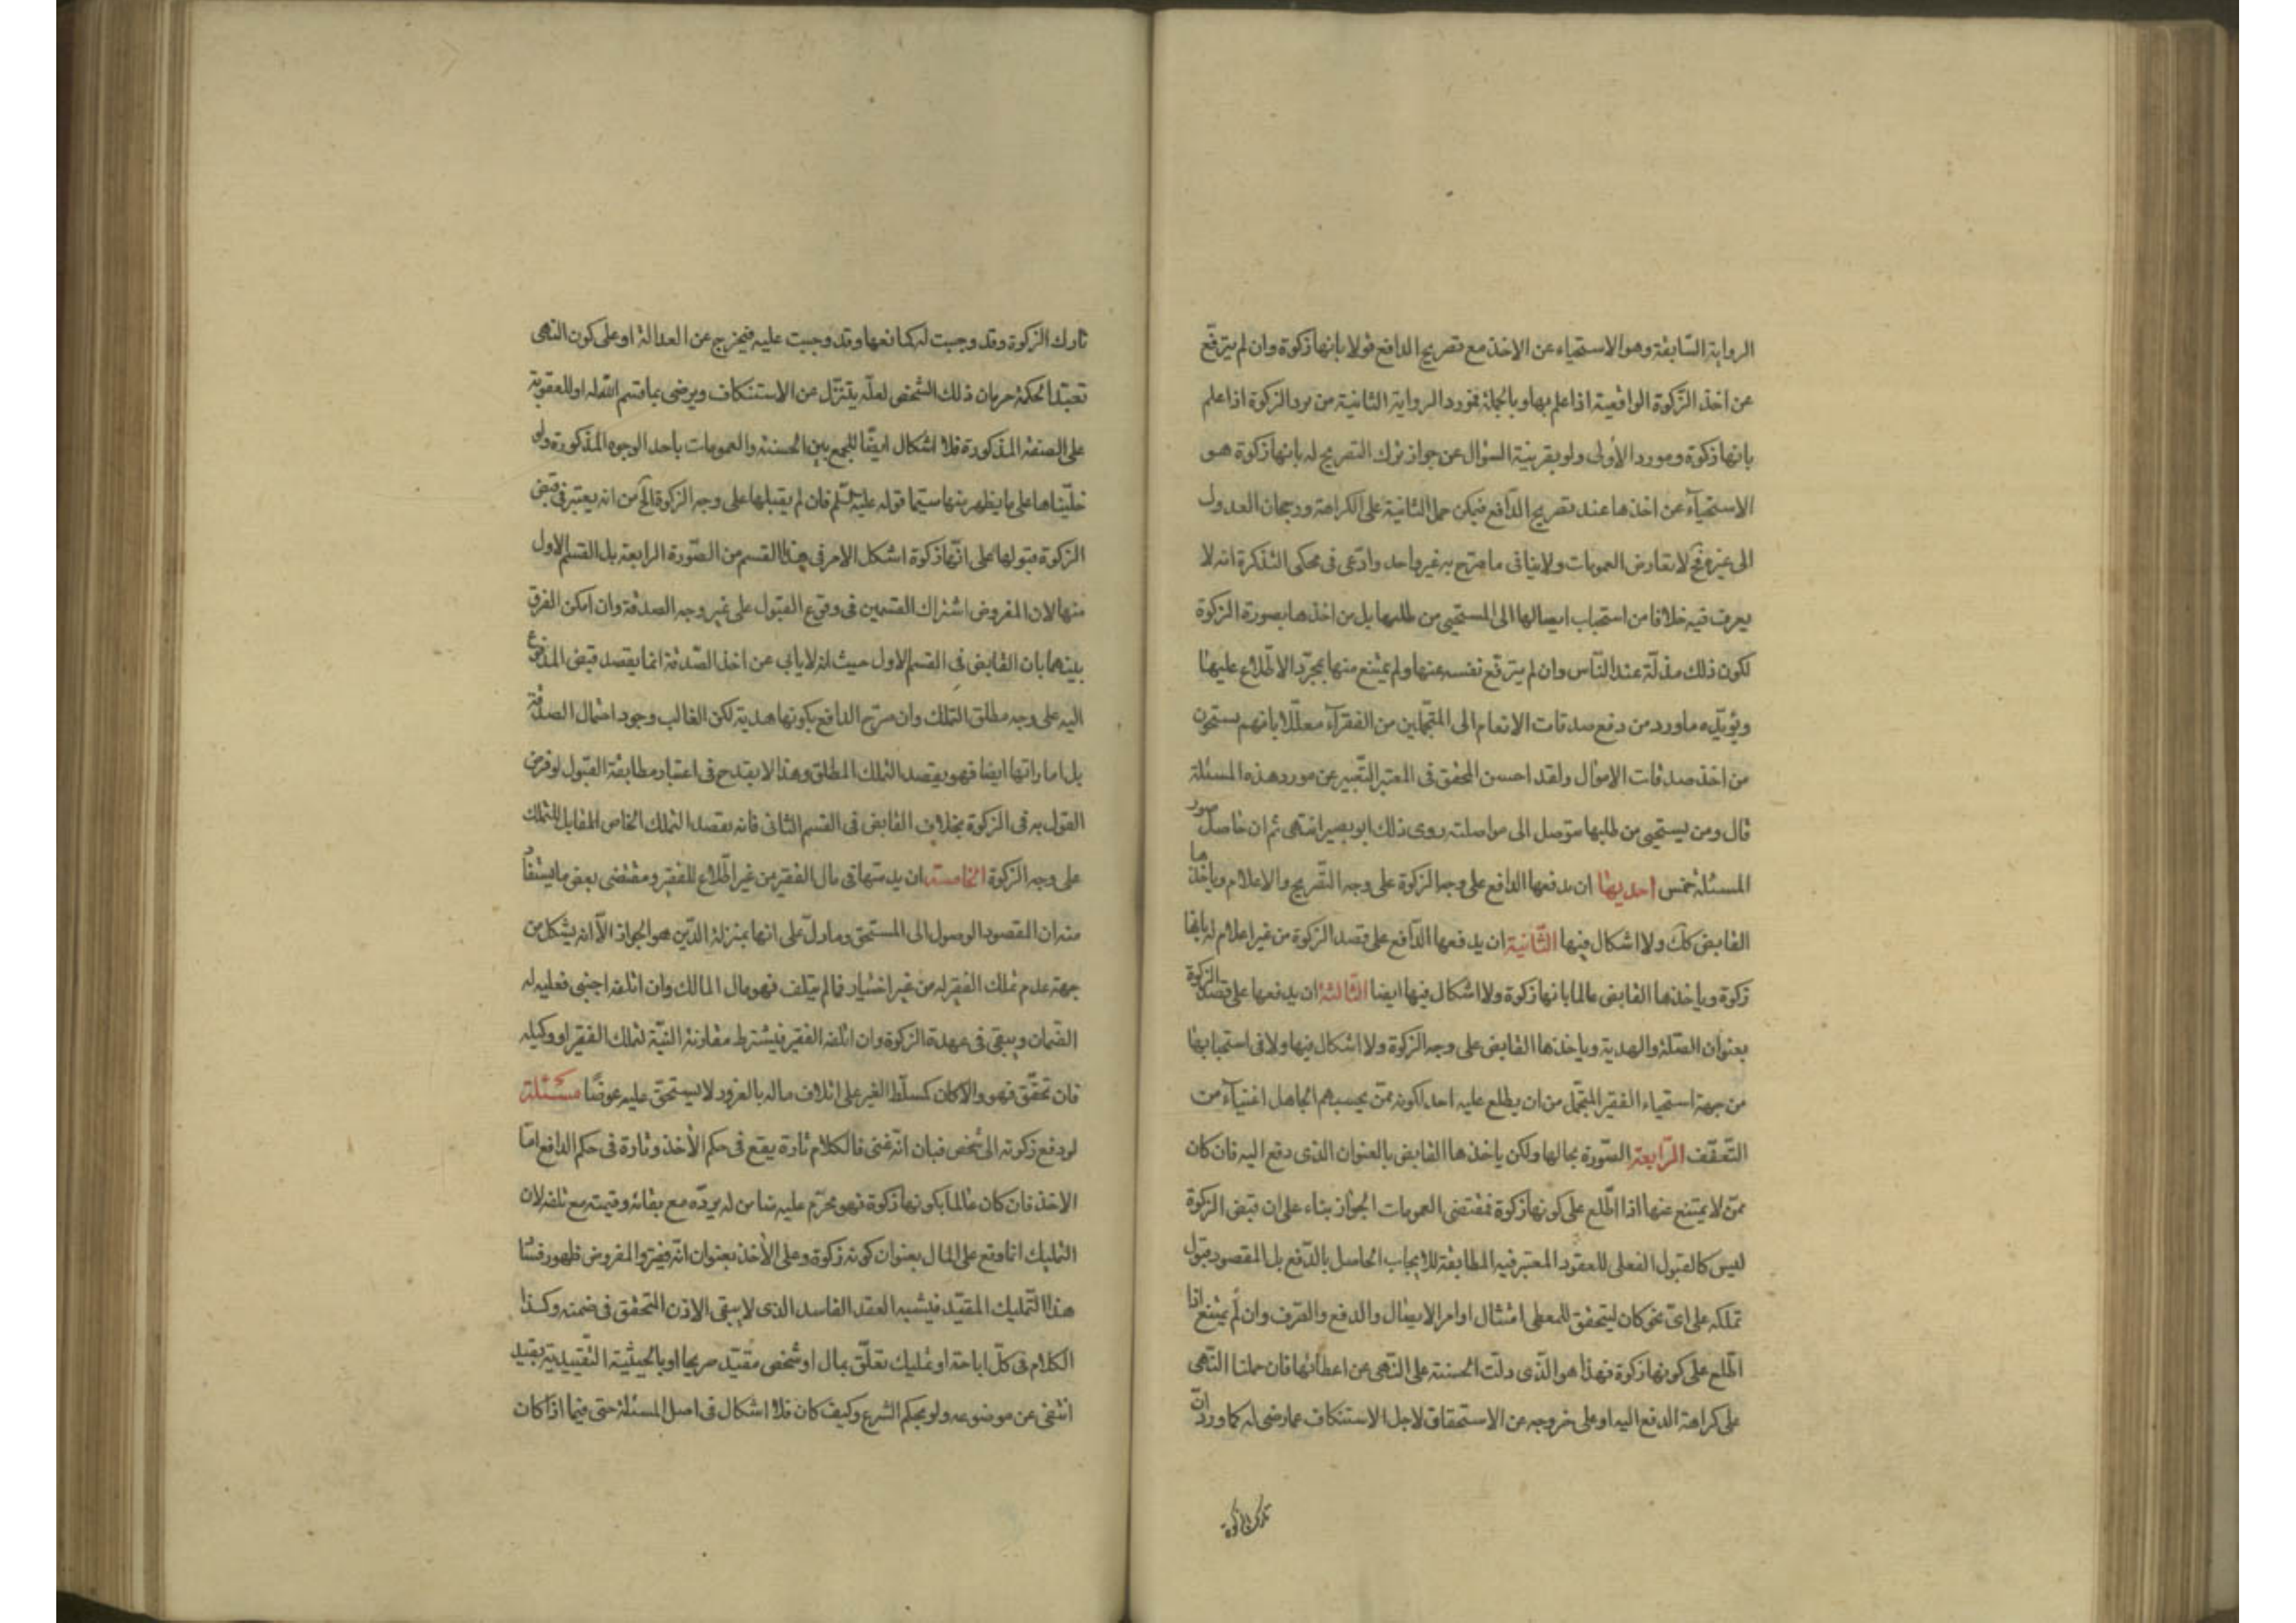 الرواية السّابقة وهو الاستحياء عن الاخذ مع تصريح الدافع قولا بانها زكوة وان لم يترفّع
عن اخذ الزّكوة الواقعيّة اذا علم بها وبالجملة فمورد الرواية الثانية من يرد الزكوة اذا علم
بانها زكوة ومورد الأولى ولو بقرينة السؤال عن جواز ترك التصريح له بانها زكوة هو
الاستحياء عن اخذها عند تصريح الدّافع فيمكن حمل الثانية على الكراهة ورجحان العدول
الى غيره فح لا تعارض العمومات ولا ينافى ما صرّح به غير واحد وادّعى فى محكى التذكرة انه لا
يعرف فيه خلافا من استحباب ايصالها الى المستحيى من طلبها بل من اخذها بصورة الزكوة
لكون ذلك مذلّة عند النّاس وان لم يترفّع نفسه عنها ولم يمتنع منها بمجرّد الاطّلاع عليها
ويؤيّده ما ورد من دفع صدقات الانعام الى المتجمّلين من الفقرآء معلّلا بانهم يستحون
من اخذ صدقات الاموال ولقد احسن المحقق فى المعتبر التّعبير عن مورد هذه المسئلة
قال ومن يستحيى من طلبها متوصل الى مواصلته روى ذلك ابو بصير انتهى ثم ان حاصل صور
المسئلة خمس احديها ان يدفعها الدافع على وجه الزكوة على وجه التّصريح والاعلام وياخذها
القابض كك ولا اشكال فيها الثّانية ان يدفعها الدّافع على قصد الزكوة من غير اعلام له بانها
زكوة وياخذها القابض عالما بانها زكوة ولا اشكال فيها ايضا الثّالثة ان يدفعها على قصد الزكوة
بعنوان الصّلة والهدية وياخذها القابض على وجه الزكوة ولا اشكال فيها ولا فى استحبابها
من جهة استحياء الفقير المتجمّل من ان يطلع عليه احد لكونه ممّن يحسبهم الجاهل اغنيآء من
التّعفّف الرّابعة الصّورة بحالها ولكن ياخذها القابض بالعنوان الذى دفع اليه فان كان
ممّن لا يمتنع عنها اذا اطّلع على كونها زكوة فمقتضى العمومات الجواز بناء على ان قبض الزكوة
ليس كالقبول الفعلى للعقود المعتبر فيه المطابقة للايجاب الحاصل بالدّفع بل المقصود قبول
تملكه على اىّ نحو كان ليتحقق للمعطى امتثال اوامر الايصال والدفع والصّرف وان لم يمتنع اذا
اطّلع على كونها زكوة فهذا هو الّذى دلّت الحسنة على النّهى عن اعطائها فان حملنا النّهى
على كراهة الدفع اليه او على خروجه عن الاستحقاق لاجل الاستنكاف عما رضى له كما ورد انّ
تارك الزكوة
تارك الزكوة وقد وجبت له كمانعها وقد وجبت عليه فيخرج عن العدالة او على كون النهى
تعبّدا لحكمة حرمان ذلك الشّخص لعلّه يتنزّل من الاستنكاف ويرضى بما قسم الله له او للعقوبة
على الصفة المذكورة فلا اشكال ايضا للجمع بين الحسنة والعمومات باحد الوجوه المذكورة ولو
خلّيناها على ما يظهر منها سيّما قوله عليه السّلم فان لم يقبلها على وجه الزكوة الخ من انه يعتبر فى قبض
الزكوة قبولها على انّها زكوة اشكل الامر فى هذا القسم من الصّورة الرابعة بل القسم الاول
منها لان المفروض اشتراك القسمين فى وقوع القبول على غير وجه الصدقة وان امكن الفرق
بينهما بان القابض فى القسم الاول حيث انه لا يابى عن اخذ الصّدقة انما يقصد قبض المدفوع
اليه على وجه مطلق التملك وان صرّح الدافع بكونها هدية لكن الغالب وجود احتمال الصدقة
بل اماراتها ايضا فهو يقصد التملك المطلق وهذا لا يقدح فى اعتبار مطابقة القبول لو فرض
القول به فى الزكوة بخلاف القابض فى القسم الثانى فانه يقصد التملك الخاص المقابل للتملك
على وجه الزكوة الخامسة ان يدسّها فى مال الفقير من غير اطّلاع للفقير ومقتضى بعض ما يستفاد
منه ان المقصود الوصول الى المستحق وما دلّ على انها بمنزلة الدّين هو الجواز الّا انه يشكل من
جهة عدم تملك الفقير له من غير اختيار فما لم يتلف فهو مال المالك وان اتلفه اجنبى فعليه له
الضّمان ويبقى فى عهدة الزكوة وان اتلفه الفقير فيشترط مقارنة النيّة لتملك الفقير او وكيله
فان تحقّق فهو والّا كان كمسلّط الغير على اتلاف ماله بالغرور لا يستحق عليه عوضا مسئلة
لو دفع زكوته الى شخص فبان انّه غنى فالكلام تارة يقع فى حكم الأخذ وتارة فى حكم الدافع امّا
الاخذ فان كان عالما بكونها زكوة فهو محرّم عليه ضامن له يردّه مع بقائه وقيمته مع تلفه لان
التمليك انما وقع على المال بعنوان كونه زكوة وعلى الأخذ بعنوان انّه فقير والمفروض ظهور فساد
هذا التّمليك المقيّد فيشبه العقد الفاسد الذى لا يبقى الاذن المتحقق فى ضمنه وكذا
الكلام فى كلّ اباحة او تمليك تعلّق بمال او شخص مقيّد صريحا او بالحيثيّة التقييدية بقيد
انتفى عن موضوعه ولو بحكم الشرع وكيف كان فلا اشكال فى اصل المسئلة حتى فيما اذا كان